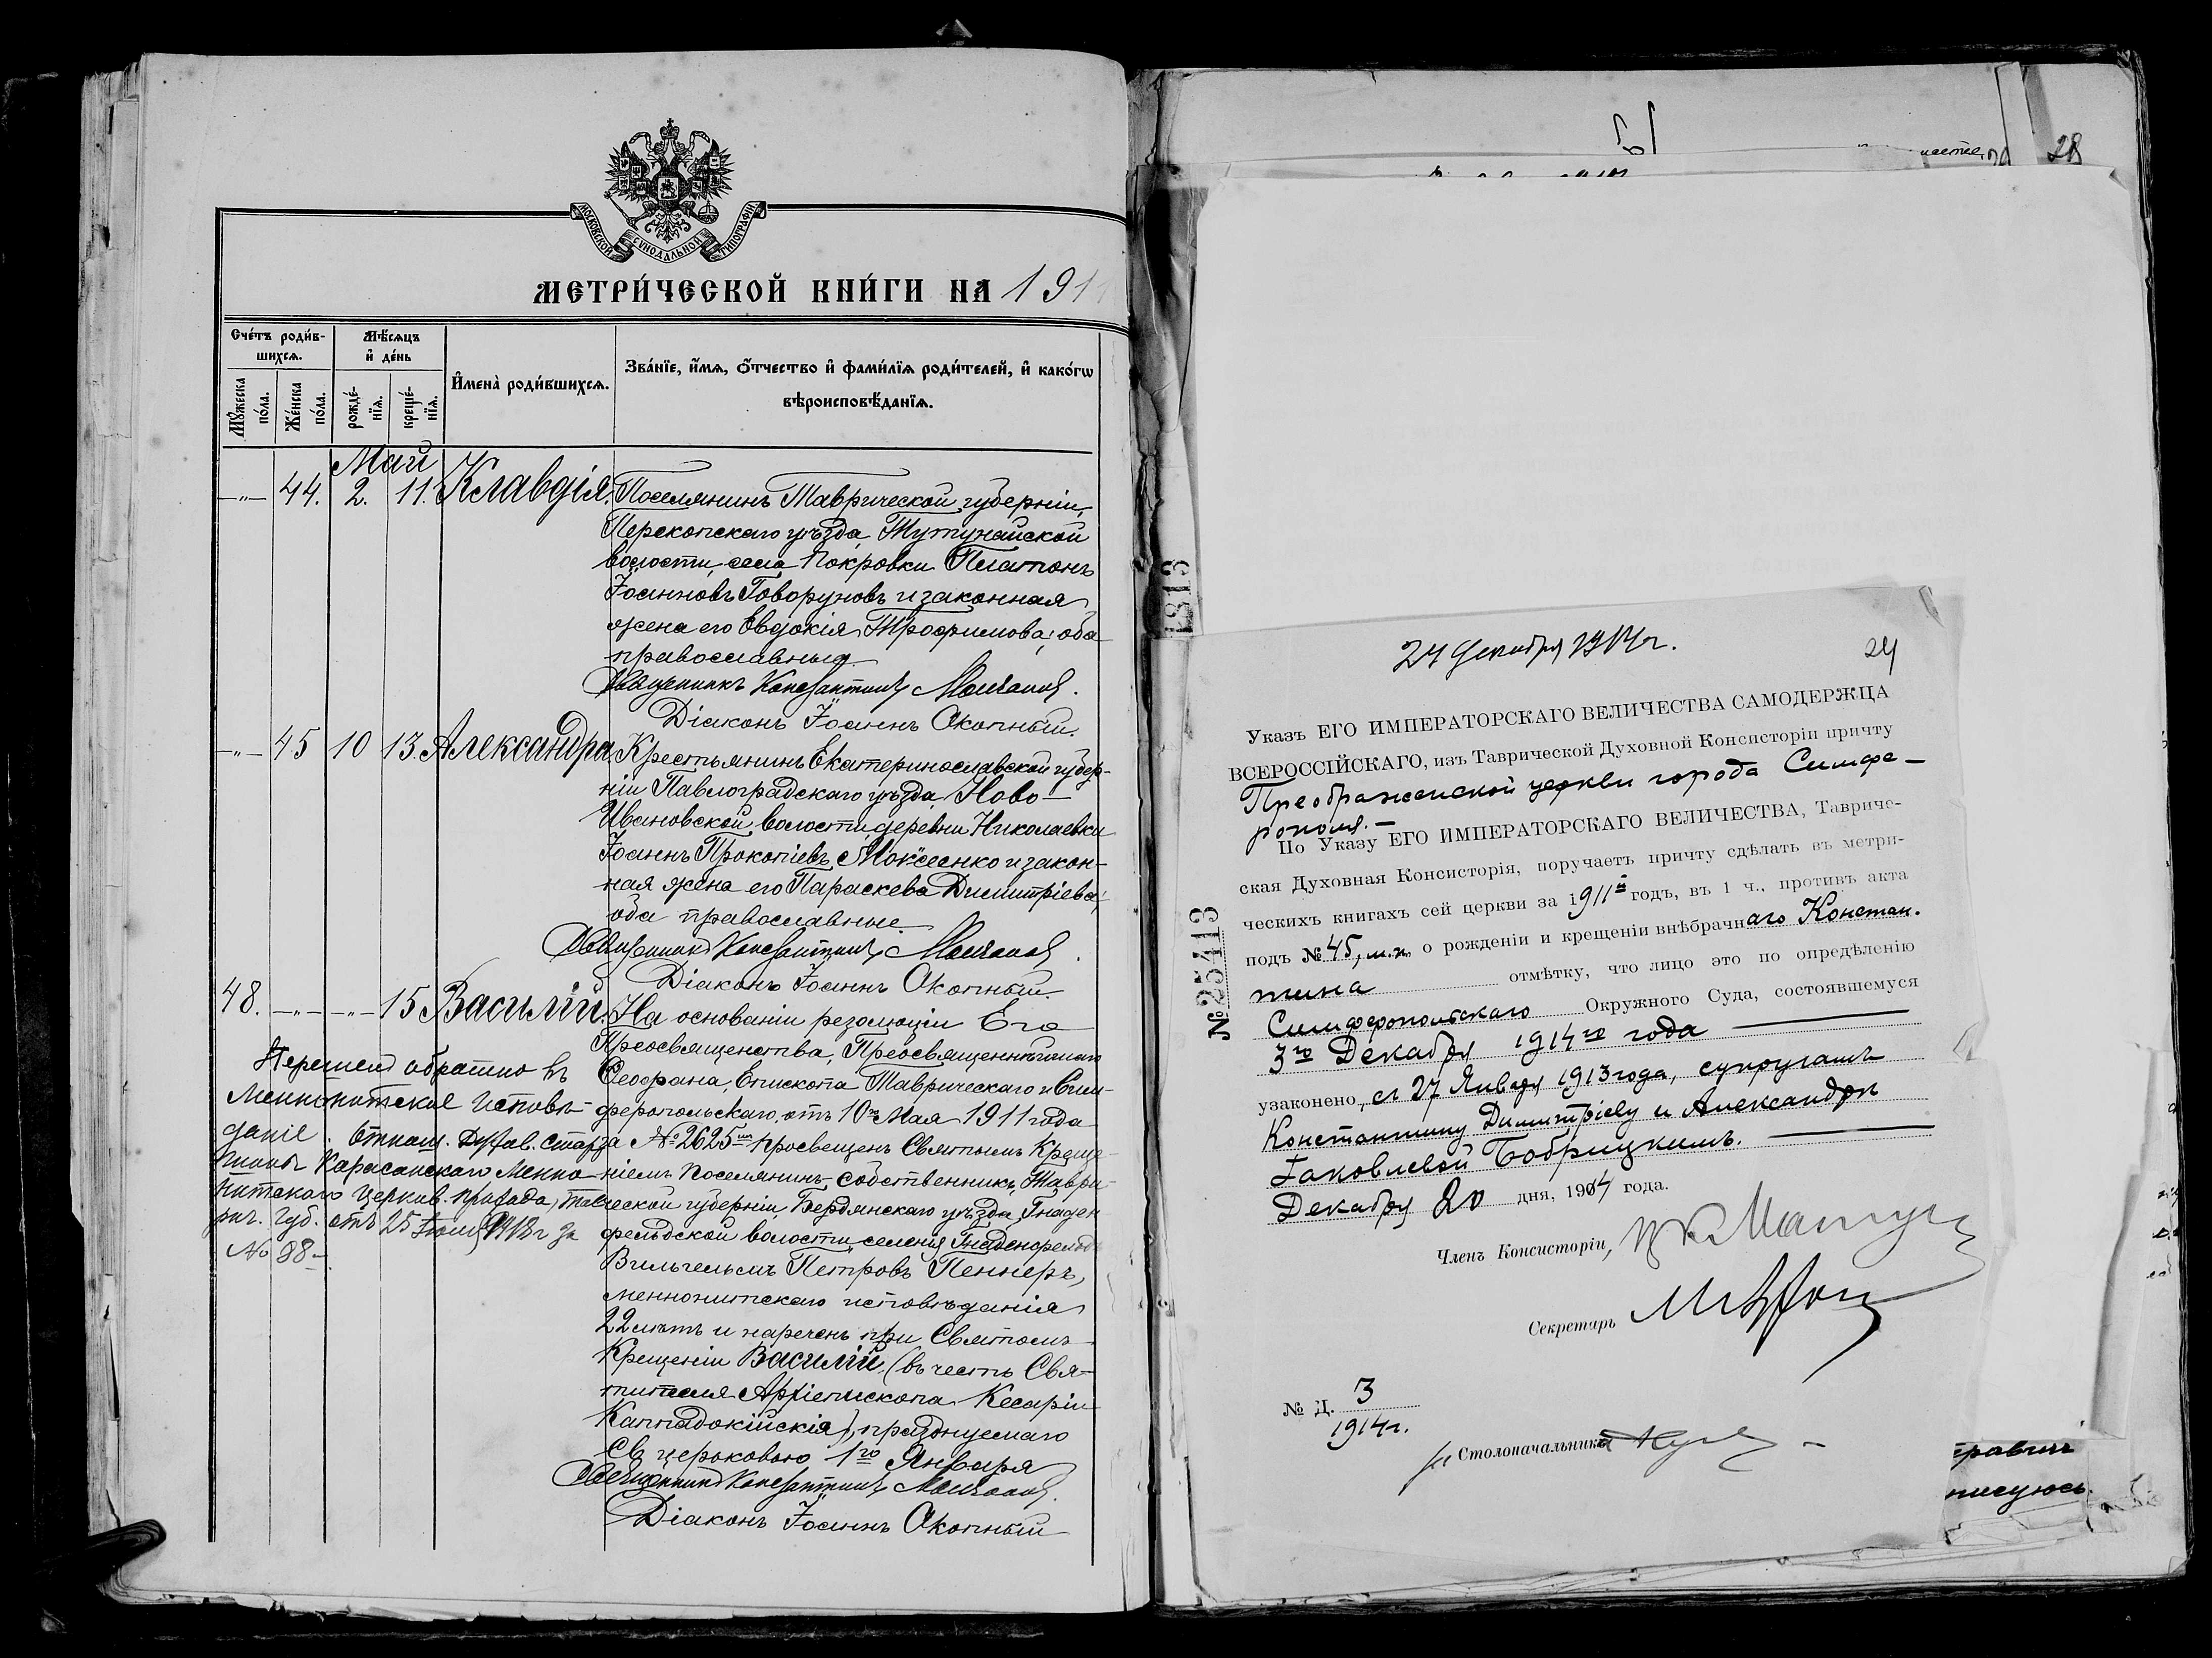 МОСКОВСКОЙ СѴНОДАЛЬНОЙ ТИПОГРАФІИ
МЕТРИ́ЧЕСКОЙ КНИ́ГИ НА 1911
Сче́тъ роди́в-
шихсѧ.
Мѣ́сѧцъ
и҆ де́нь
Мꙋ́жеска
по́ла.
Же́нска
по́ла.
рожде́-
нїѧ.
креще́-
нїѧ.
И҆мена̀ роди́вшихсѧ.
Зва́нїе, и҆́мѧ, ѻ҆́тчество и҆ фами́лїѧ роди́телей, и҆ како́гѡ
вѣроисповѣ́данїѧ.
Май
-"- 44. 2. 11. Клавдія.
Поселянинъ Таврической губерніи,
Перекопскаго уѣзда, Тутунайской
волости, села Покровки Платонъ
Іоанновъ Говоруновъ и законная
жена его Евдокія Трофимова, оба
православныя.
Священникъ Константинъ
Діаконъ Іоаннъ Окопный.
-"- 45 10 13. Александра.
Крестьянинъ Екатеринославской губер-
ніи Павлоградскаго уѣзда, Ново-
Ивановской волости, деревни Николаевки
Іоаннъ Прокопіевъ Мокѣенко и закон-
ная жена его Параскева Димитріева,
оба православные.
Священникъ Константинъ
Діаконъ Іоаннъ Окопный.
48. -"- -"- 15 Василій.
На основаніи резолюціи Его
Преосвященства, Преосвященнѣйшаго
Ѳеофана, Епископа Таврическаго и Сим-
феропольскаго, отъ 10го Мая 1911 года
за № 2625мъ просвещенъ Святымъ Креще-
ніемъ поселянинъ-собственникъ, Таври-
ческой губерніи, Бердянскаго уѣзда, Гнаден
фельдской волости, селенія Гнаденфельдъ
Вильгельмъ Петровъ Пеннеръ,
меннонитскаго исповѣданія
22 лѣтъ и нареченъ при Святомъ
Крещеніи Василій (въ честь Свя-
тителя Архіепископа Кесаріи
Каппадокійскія), празднуемаго
Св. церковью 1го Января
Священникъ Константинъ
Діаконъ Іоаннъ Окопный
Перешелъ обратно въ
Меннонитское исповѣ-
даніе. Отнош.
Карасанскаго Менно-
нитскаго церков. прихода, Тав-
рич. губ. отъ 25 1918 г за
№ 88-
28
1313
24 декабря 1914 г.
24
Указъ ЕГО ИМПЕРАТОРСКАГО ВЕЛИЧЕСТВА САМОДЕРЖЦА
ВСЕРОССІЙСКАГО, изъ Таврической Духовной Консисторіи причту
Преображенской церкви города Симфе-
рополя.-
По Указу ЕГО ИМПЕРАТОРСКАГО ВЕЛИЧЕСТВА, Тавриче-
ская Духовная Консисторія, поручаетъ причту сдѣлать въ метри-
ческихъ книгахъ сей церкви за 1911й годъ, въ 1 ч., противъ акта
подъ № 45, м.п. о рожденіи и крещеніи внѣбрачнаго Констан-
тина отмѣтку, что лицо это по опредѣленію
Симферопольскаго Окружного Суда, состоявшемуся
3го Декабря 1914го года
узаконено, съ 27 Января 1913 года, супругамъ
Константину Димитріеву и Александрѣ
Іаковлевой Бобрицкимъ.
Декабря 20 дня, 1914 года.
Членъ Консисторіи,
Секретарь
№ 25413
№ Д. 3
1914 г.
Столоначальника
писуюсь.